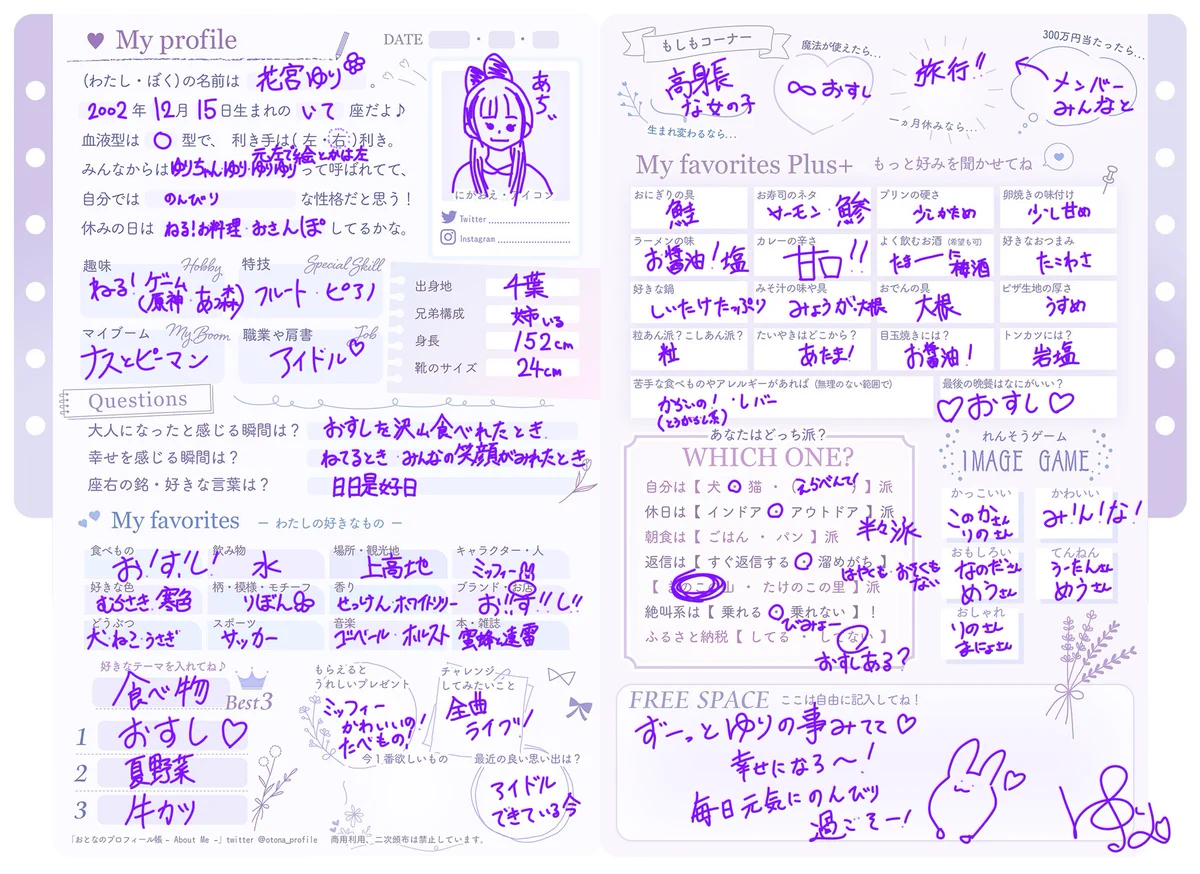 My profile
DATE ・ ・
(わたし・ぼく)の名前は 花宮ゆり 。
2002年 12月 15日生まれの いて 座だよ♪
血液型は O 型で、 利き手は(左・右)利き。
元左で絵とかは左
みんなからは ゆりちゃん ゆり ゆりゆり って呼ばれてて、
自分では のんびり な性格だと思う！
休みの日は ねる！お料理・おさんぽ してるかな。
あち〜
にがおえ・アイコン
Twitter
Instagram
趣味 Hobby
ねる！ゲーム
(原神・あつ森)
特技 Special Skill
フルート・ピアノ
マイブーム My Boom
ナスとピーマン
職業や肩書 Job
アイドル♡
出身地 千葉
兄弟構成 姉いる
身長 152cm
靴のサイズ 24cm
Questions
大人になったと感じる瞬間は？ おすしを沢山食べれたとき
幸せを感じる瞬間は？ ねてるとき・みんなの笑顔がみれたとき
座右の銘・好きな言葉は？ 日日是好日
My favorites － わたしの好きなもの －
食べもの お！す！し！
飲み物 水
場所・観光地 上高地
キャラクター・人 ミッフィー
好きな色 むらさき・寒色
柄・模様・モチーフ りぼん
香り せっけん・ホワイトリリー
ブランド・お店 お!!す!!し!!
どうぶつ 犬・ねこ・うさぎ
スポーツ サッカー
音楽 ゴーベール・ホルスト
本・雑誌 蜜蜂と遠雷
好きなテーマを入れてね♪
食べ物
Best3
1 おすし♡
2 夏野菜
3 牛カツ
もらえると
うれしいプレゼント
ミッフィー
かわいいの！
たべもの！
今1番欲しいもの
チャレンジ
してみたいこと
全曲
ライブ！
最近の良い思い出は？
アイドル
できている今
「おとなのプロフィール帳 - About Me -」twitter @otona_profile 商用利用、二次頒布は禁止しています。
もしもコーナー
高身長
な女の子
生まれ変わるなら...
魔法が使えたら...
∞おすし
旅行!!
一ヵ月休みなら...
300万円当たったら...
メンバー
みんなと
My favorites Plus+ もっと好みを聞かせてね
おにぎりの具 鮭
お寿司のネタ サーモン・鯵
プリンの硬さ 少しかため
卵焼きの味付け 少し甘め
ラーメンの味 お醤油！塩
カレーの辛さ 甘口!!
よく飲むお酒 (希望も可) たまーーに梅酒
好きなおつまみ たこわさ
好きな鍋 しいたけたっぷり
みそ汁の味や具 みょうが・大根
おでんの具 大根
ピザ生地の厚さ うすめ
粒あん派？こしあん派？ 粒
たいやきはどこから？ あたま！
目玉焼きには？ お醤油！
トンカツには？ 岩塩
苦手な食べものやアレルギーがあれば (無理のない範囲で)
からいの！・レバー
(とうがらし系)
最後の晩餐はなにがいい？
♡おすし♡
あなたはどっち派？
WHICH ONE?
自分は【 犬 ・ 猫 ・ ( えらべんて！ ) 】派
休日は【 インドア ・ アウトドア 】派
半々派
朝食は【 ごはん ・ パン 】派
返信は【 すぐ返信する ・ 溜めがち 】
はやくも・おそくもない
【 きのこの山 ・ たけのこの里 】派
絶叫系は【 乗れる ・ 乗れない 】！
びみょー
ふるさと納税【 してる ・ してない 】
おすしある？
れんそうゲーム
IMAGE GAME
かっこいい
このかさん
りのさん
かわいい
み！ん！な！
おもしろい
なのださん
めうさん
てんねん
うーたんさん
めうさん
おしゃれ
りのさん
まによさん
FREE SPACE ここは自由に記入してね！
ずーっとゆりの事みてて♡
幸せになろ〜！
毎日元気にのんびり
過ごそー！
ゆり